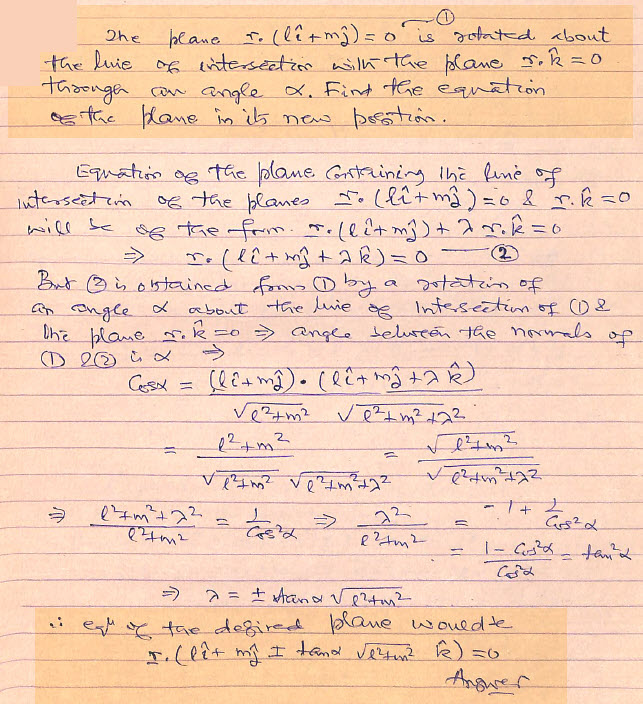 ①
The plane r. (lî+mĵ) = 0 is rotated about
the line of intersection with the plane r.k̂ = 0
through an angle α. Find the equation
of the plane in its new position.
Equation of the plane containing the line of
intersection of the planes r. (lî+mĵ) = 0 & r.k̂ = 0
will be of the form. r. (lî+mĵ) + λ r.k̂ = 0
⇒ r. (lî+mĵ + λk̂) = 0 — ②
But ② is obtained from ① by a rotation of
an angle α about the line of Intersection of ① &
the plane r.k̂ = 0 ⇒ angle between the normals of
① & ② is α ⇒
Cosα = (lî+mĵ) • (lî+mĵ+λk̂) / √(l²+m²) √(l²+m²+λ²)
= l²+m² / √(l²+m²) √(l²+m²+λ²) = √(l²+m²) / √(l²+m²+λ²)
⇒ (l²+m²+λ²)/(l²+m²) = 1/Cos²α ⇒ λ²/(l²+m²) = -1 + 1/Cos²α
= (1-Cos²α)/Cos²α = tan²α
⇒ λ = ± tanα √(l²+m²)
∴ eqⁿ of the desired plane would be
r. (lî+mĵ ± tanα √(l²+m²) k̂) = 0
Answer